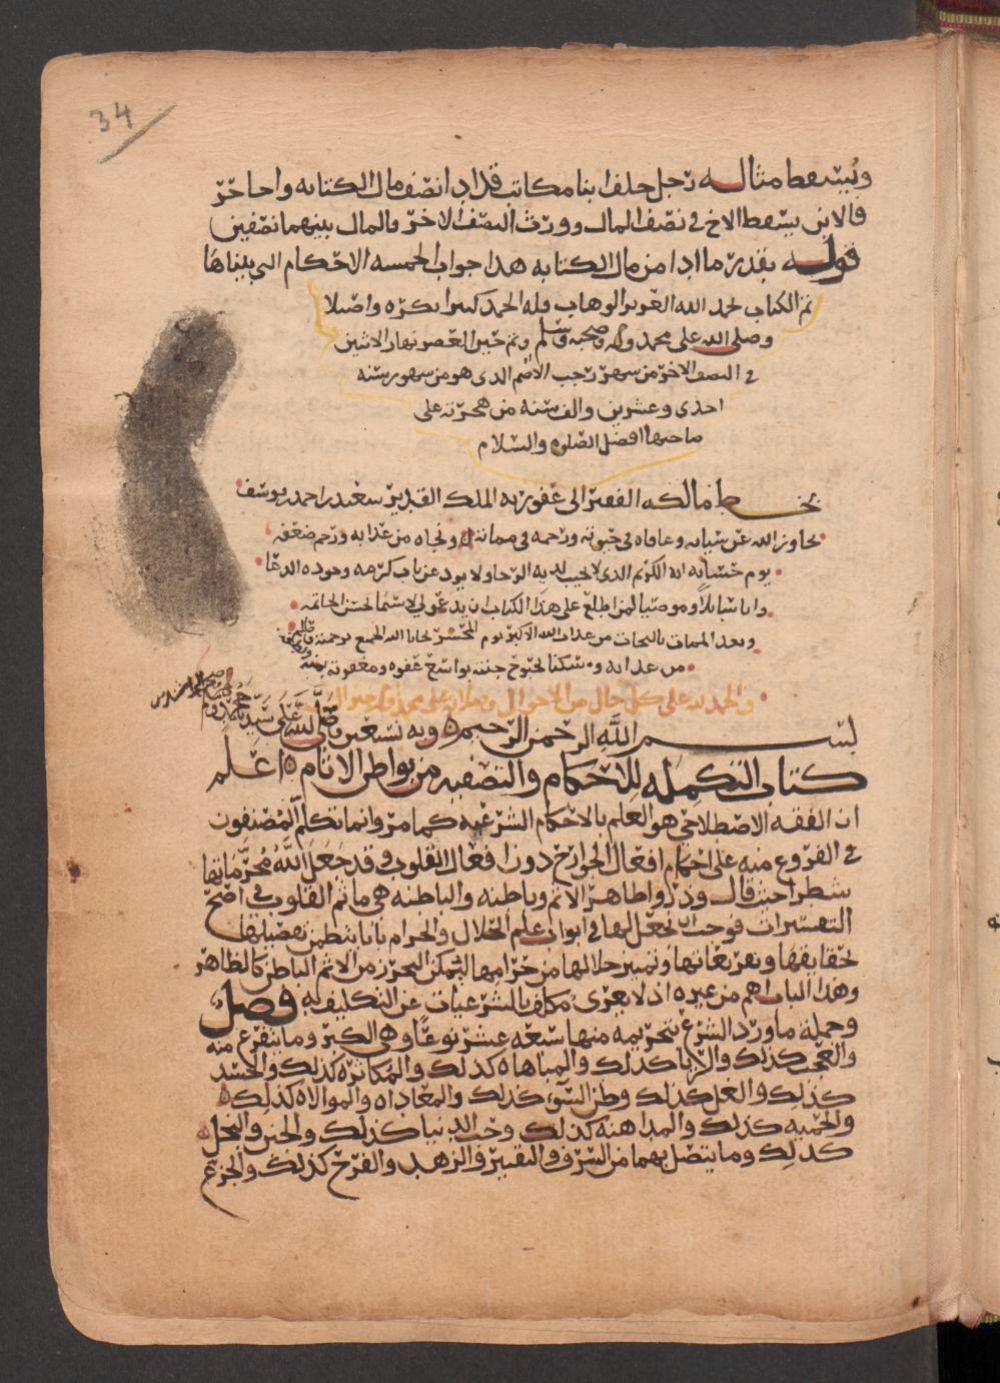 34
ويسقط مثاله رجل خلف ابنا مكاتب قد ادا نصف مال الكتابه واخا حر
فالابن يسقط الاخ في نصف المال وورث النصف الاخر فالمال بينهما نصفين
قوله بقدر ما ادا من مال الكتابه هذا جواب الخمسه الاحكام التي بيناها
تم الكتاب بحمد الله العزيز الوهاب فله الحمد كثيرا بكره واصيلا
وصلى الله على محمد واله وصحبه وسلم وتم حين العصر نهار الاثنين
في النصف الاخر من شهر رجب الاصم الذي هو من شهور سنه
احدى وعشرين والف سنه من هجرته على
صاحبها افضل الصلوه والسلام
بخط مالكه الفقير الى عفو ربه الملك القدير سعيد بن احمد بن يوسف
تجاوز الله عن سياته وعافاه في حيوته ورحمه في مماته ونجاه من عذابه ورحم ضعفه
يوم حسابه انه الكريم الذي لا يخيب لديه الرجا ولا يرد عن باب كرمه وجوده الدعا
وانا سايلا وموصيا لمن اطلع على هذا الكتاب ان يدعو لي لا سيما بحسن الخاتمه
وبعد الممات بالنجاه من عذاب الله الاكبر يوم المحشر نجانا الله الجميع برحمته
من عذابه وسكنا بحبوح جنته بواسع عفوه ومغفرته بمنه
والحمد لله على كل حال من الاحوال وصلاته على محمد واله خير ال
بسم الله الرحمن الرحيم وبه نستعين وصلى الله على سيدنا محمد واله
كتاب التكمله للاحكام والتصفيه من بواطن الاثام اعلم
ان الفقه الاصطلاحي هو العلم بالاحكام الشرعيه كما مر وانما تكلم المصنفون
في الفروع منه على احكام افعال الجوارح دون افعال القلوب وقد جعل الله محرماتها
شطرا حيث قال وذروا ظاهر الاثم وباطنه والباطنه هي ماثم القلوب في اصح
التفسيرات فوجب ان نجعل لها في ابواب علم الحلال والحرام بابا ينتظم تفصيلها
بحقايقها وتفريعاتها وتمييز حلالها من حرامها ليتمكن التحرز من الاثم الباطن كالظاهر
وهذا الباب اهم من غيره اذ لا يعرى مكلف بالشرعيات عن التكليف به فصل
وجملة ما ورد الشرع بتحريمه منها تسعه عشر نوعا وهي الكبر وما يتفرع منه
والعجب كذلك والريا كذلك والمباهاه كذلك والمكاثره كذلك والحسد
كذلك والغل كذلك وظن السوء كذلك والمعاداه والموالاه كذلك
والحميه كذلك والمداهنه كذلك وحب الدنيا كذلك والجبن والبخل
كذلك وما يتصل بهما من السرف والتقتير والزهد والفرح كذلك والجزع